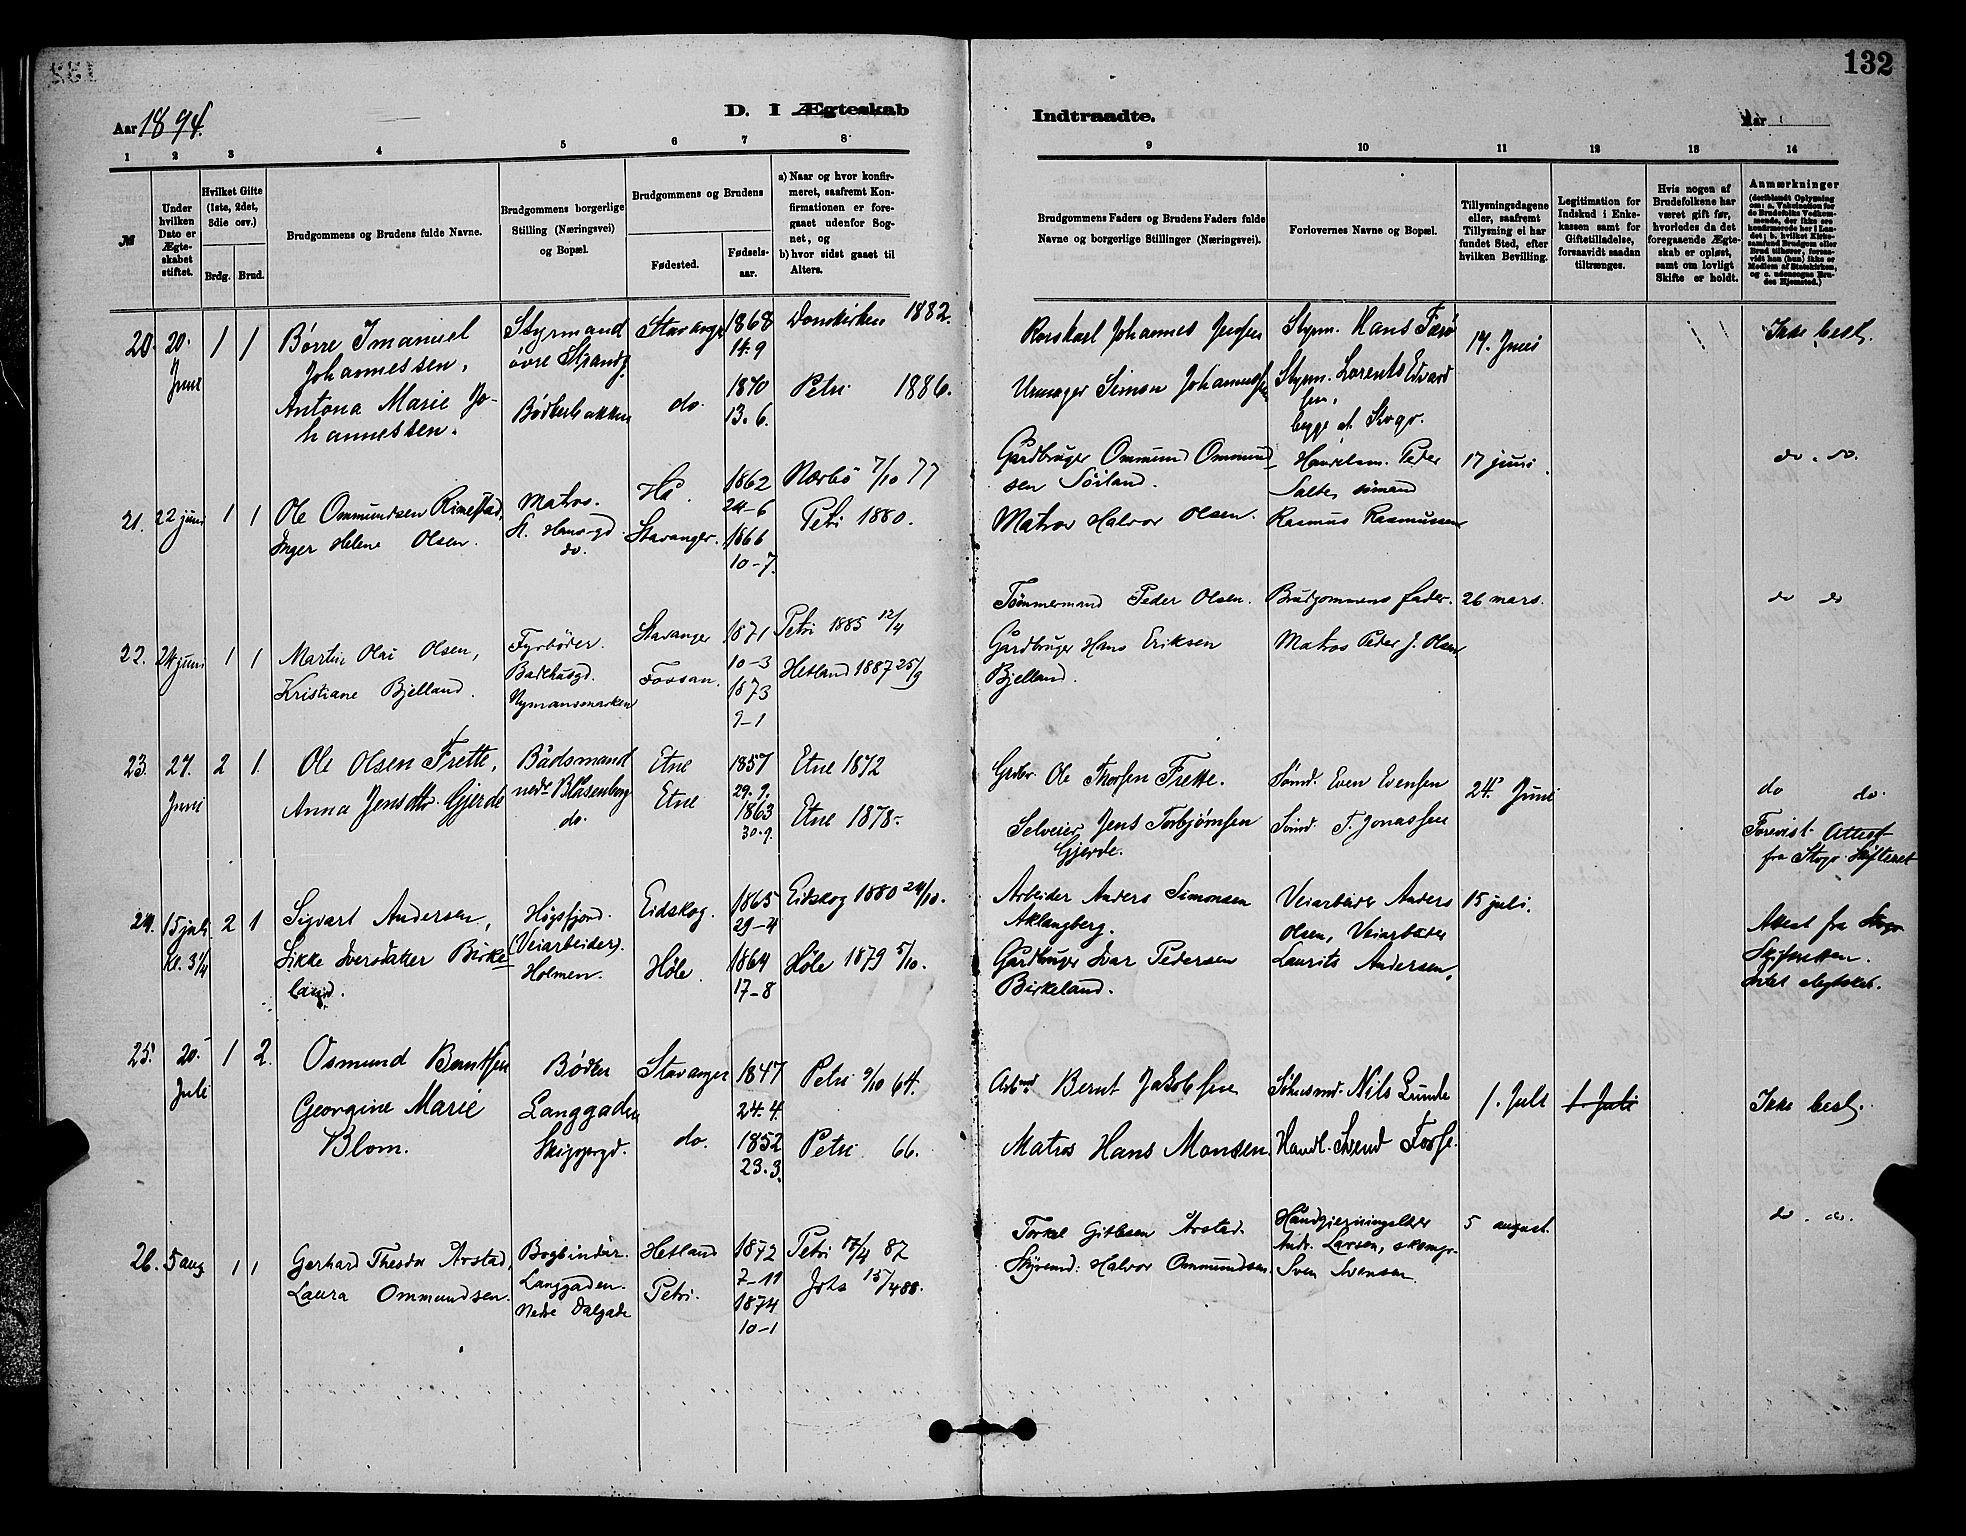 132
Aar 1894.
D. I Ægteskab
Indtraadte.
Aar
1 2 3 4 5 6 7 8
9 10 11 12 13 14
№
Under hvilken Dato er Ægteskabet stiftet.
Hvilket Gifte (1ste, 2det, 3die osv.)
Brdg. Brud.
Brudgommens og Brudens fulde Navne.
Brudgommens borgerlige Stilling (Næringsvei) og Bopæl.
Brudgommens og Brudens
Fødested.
Fødselsaar.
a) Naar og hvor konfirmeret, saafremt Konfirmationen er foregaaet udenfor Sognet, og
b) hvor sidst gaaet til Alters.
Brudgommens Faders og Brudens Faders fulde Navne og borgerlige Stillinger (Næringsvei).
Forlovernes Navne og Bopæl.
Tillysningsdagene eller, saafremt Tillysning ei har fundet Sted, efter hvilken Bevilling.
Legitimation for Indskud i Enkekassen samt for Giftetilladelse, forsaavidt saadan tiltrænges.
Hvis nogen af Brudefolkene har været gift før, hvorledes da det foregaaende Ægteskab er opløst, samt om lovligt Skifte er holdt.
Anmærkninger
20. 20. Juni 1 1
Børre Imanuel Johannessen,
Antona Marie Johannessen.
Styrmand øvre Strandg.
Bødkerbakken
Stavanger
do.
1868 14.9
1870 13.6.
Domkirken 1882.
Petri 1886.
Johannes Jensen
Simon Johannessen
Styrm. Hans Farø
Styrm. Lorents Edvardsen, begge af Stvgr.
17. Juni
Ikke besl.
21. 22 juni 1 1
Ole Ommundsen Rimestad,
Inger Helene Olsen.
Matros. St. Hansgd
do.
Hå.
Stavanger.
1862 24-6
1866 10-7.
Nærbø 7/10 77
Petri 1880.
Gårdbruger Ommund Ommundsen Sørland.
Matros Halvor Olsen.
Peder Salte, sømand
Rasmus Rasmussen
17 juni.
do. do.
22. 24 juni 1 1
Martin Olai Olsen,
Kristiane Bjelland.
Fyrbøder. Badehusgd.
Nymansmarken
Stavanger
Fossan.
1871 10-3
1873 9-1
Petri 1885 12/4
Hetland 1887 25/9
Tømmermand Peder Olsen.
Gårdbruger Hans Eriksen Bjelland.
Brudgommens fader.
Matros Peder J. Olsen
26 mars.
do do
23. 27. Juni 2 1
Ole Olsen Frette,
Anna Jensdtr. Gjerde
Bådsmand nedr Blåsenborg
do.
Etne
Etne
1857 29.9.
1863 30.9.
Etne 1872
Etne 1878.
Grdbr. Ole Thorsen Frette.
Selveier Jens Torbjørnsen Gjerde.
Sømd. Even Evensen
Sømd. T. Jonassen
24. Juni
do do.
Forevist Attest fra Stvgr. Skifteret
24. 15 juli Kl. 3¼ 2 1
Sigvart Andersen,
Sikke Iversdatter Birkeland.
Høgsfjord. (Veiarbeider).
Holmen.
Eidskog.
Høle.
1865 29-4
1864 17-8
Eidskog 1880 24/10.
Høle 1879 5/10.
Arbeider Anders Simonsen Aklangberg.
Gårdbruger Ivar Pedersen Birkeland.
Veiarbeider Anders Olsen, Veiarbeider Laurits Andersen.
15 juli.
Attest fra Stvgr Skifteretten.
Intet slegtskab.
25. 20. Juli 1 2.
Osmund Berntsen
Georgine Marie Blom.
Bødker Langgaden
Skippergd.
Stavanger
do.
1847 24.4.
1852 23.3.
Petri 9/10 64.
Petri 66.
Arbmd Bernt Jakobsen
Matros Hans Monsen
Nils Lunde
Handl. Svend Fosse.
1. Juli
1. Juli
Ikke besl.
26. 5 aug 1 1
Gerhard Theodor Årstad,
Laura Ommundsen.
Bogbinder. Langgaden.
Nedre Dalgade
Hetland
Petri.
1872 7-11
1874 10-1
Petri 17/4 87
Johs 15/4 88.
Torkel Gitlesen Årstad.
Halvor Ommundsen.
Andr. Larsen,
Sven Svensen
5 august.
do. do.